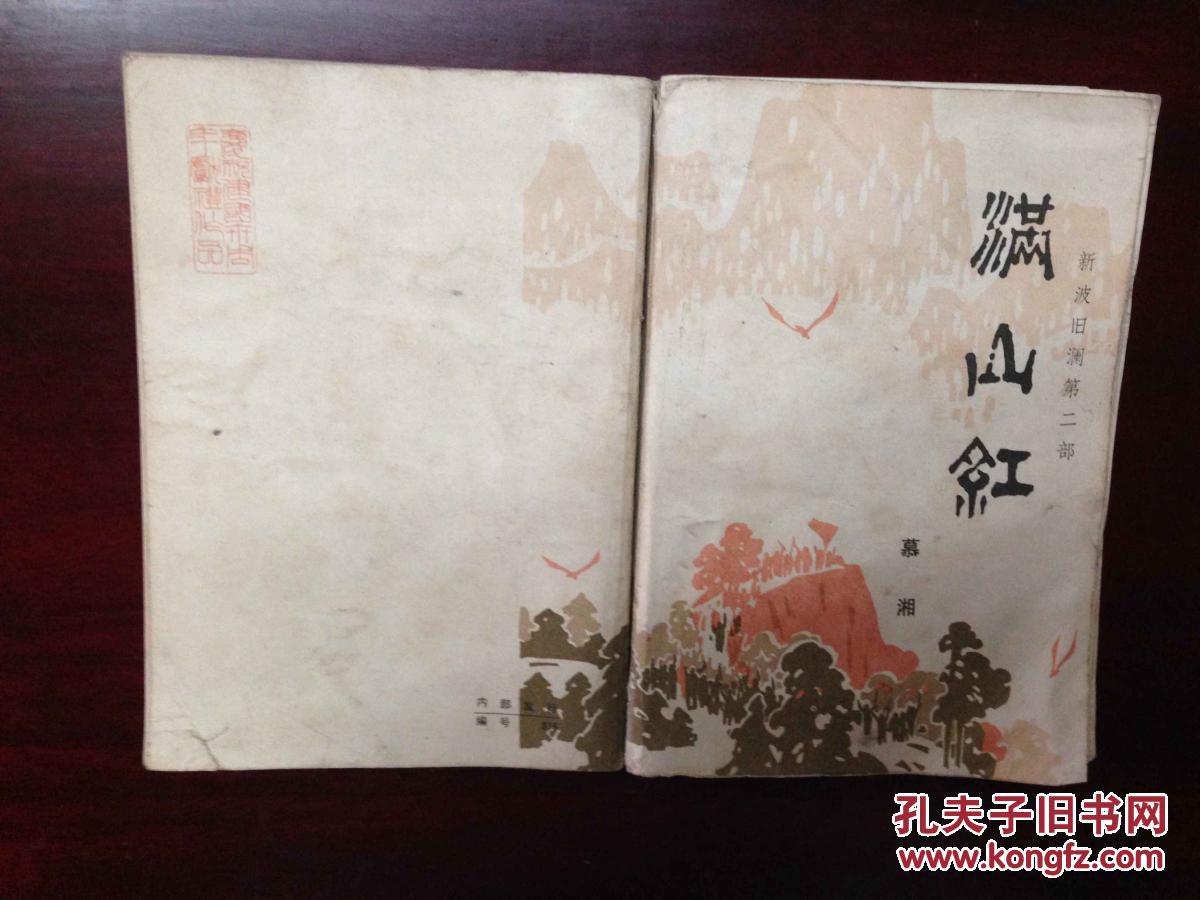 满山红
新波旧澜第二部
慕湘
内部发行
编号
孔夫子旧书网
www.kongfz.com